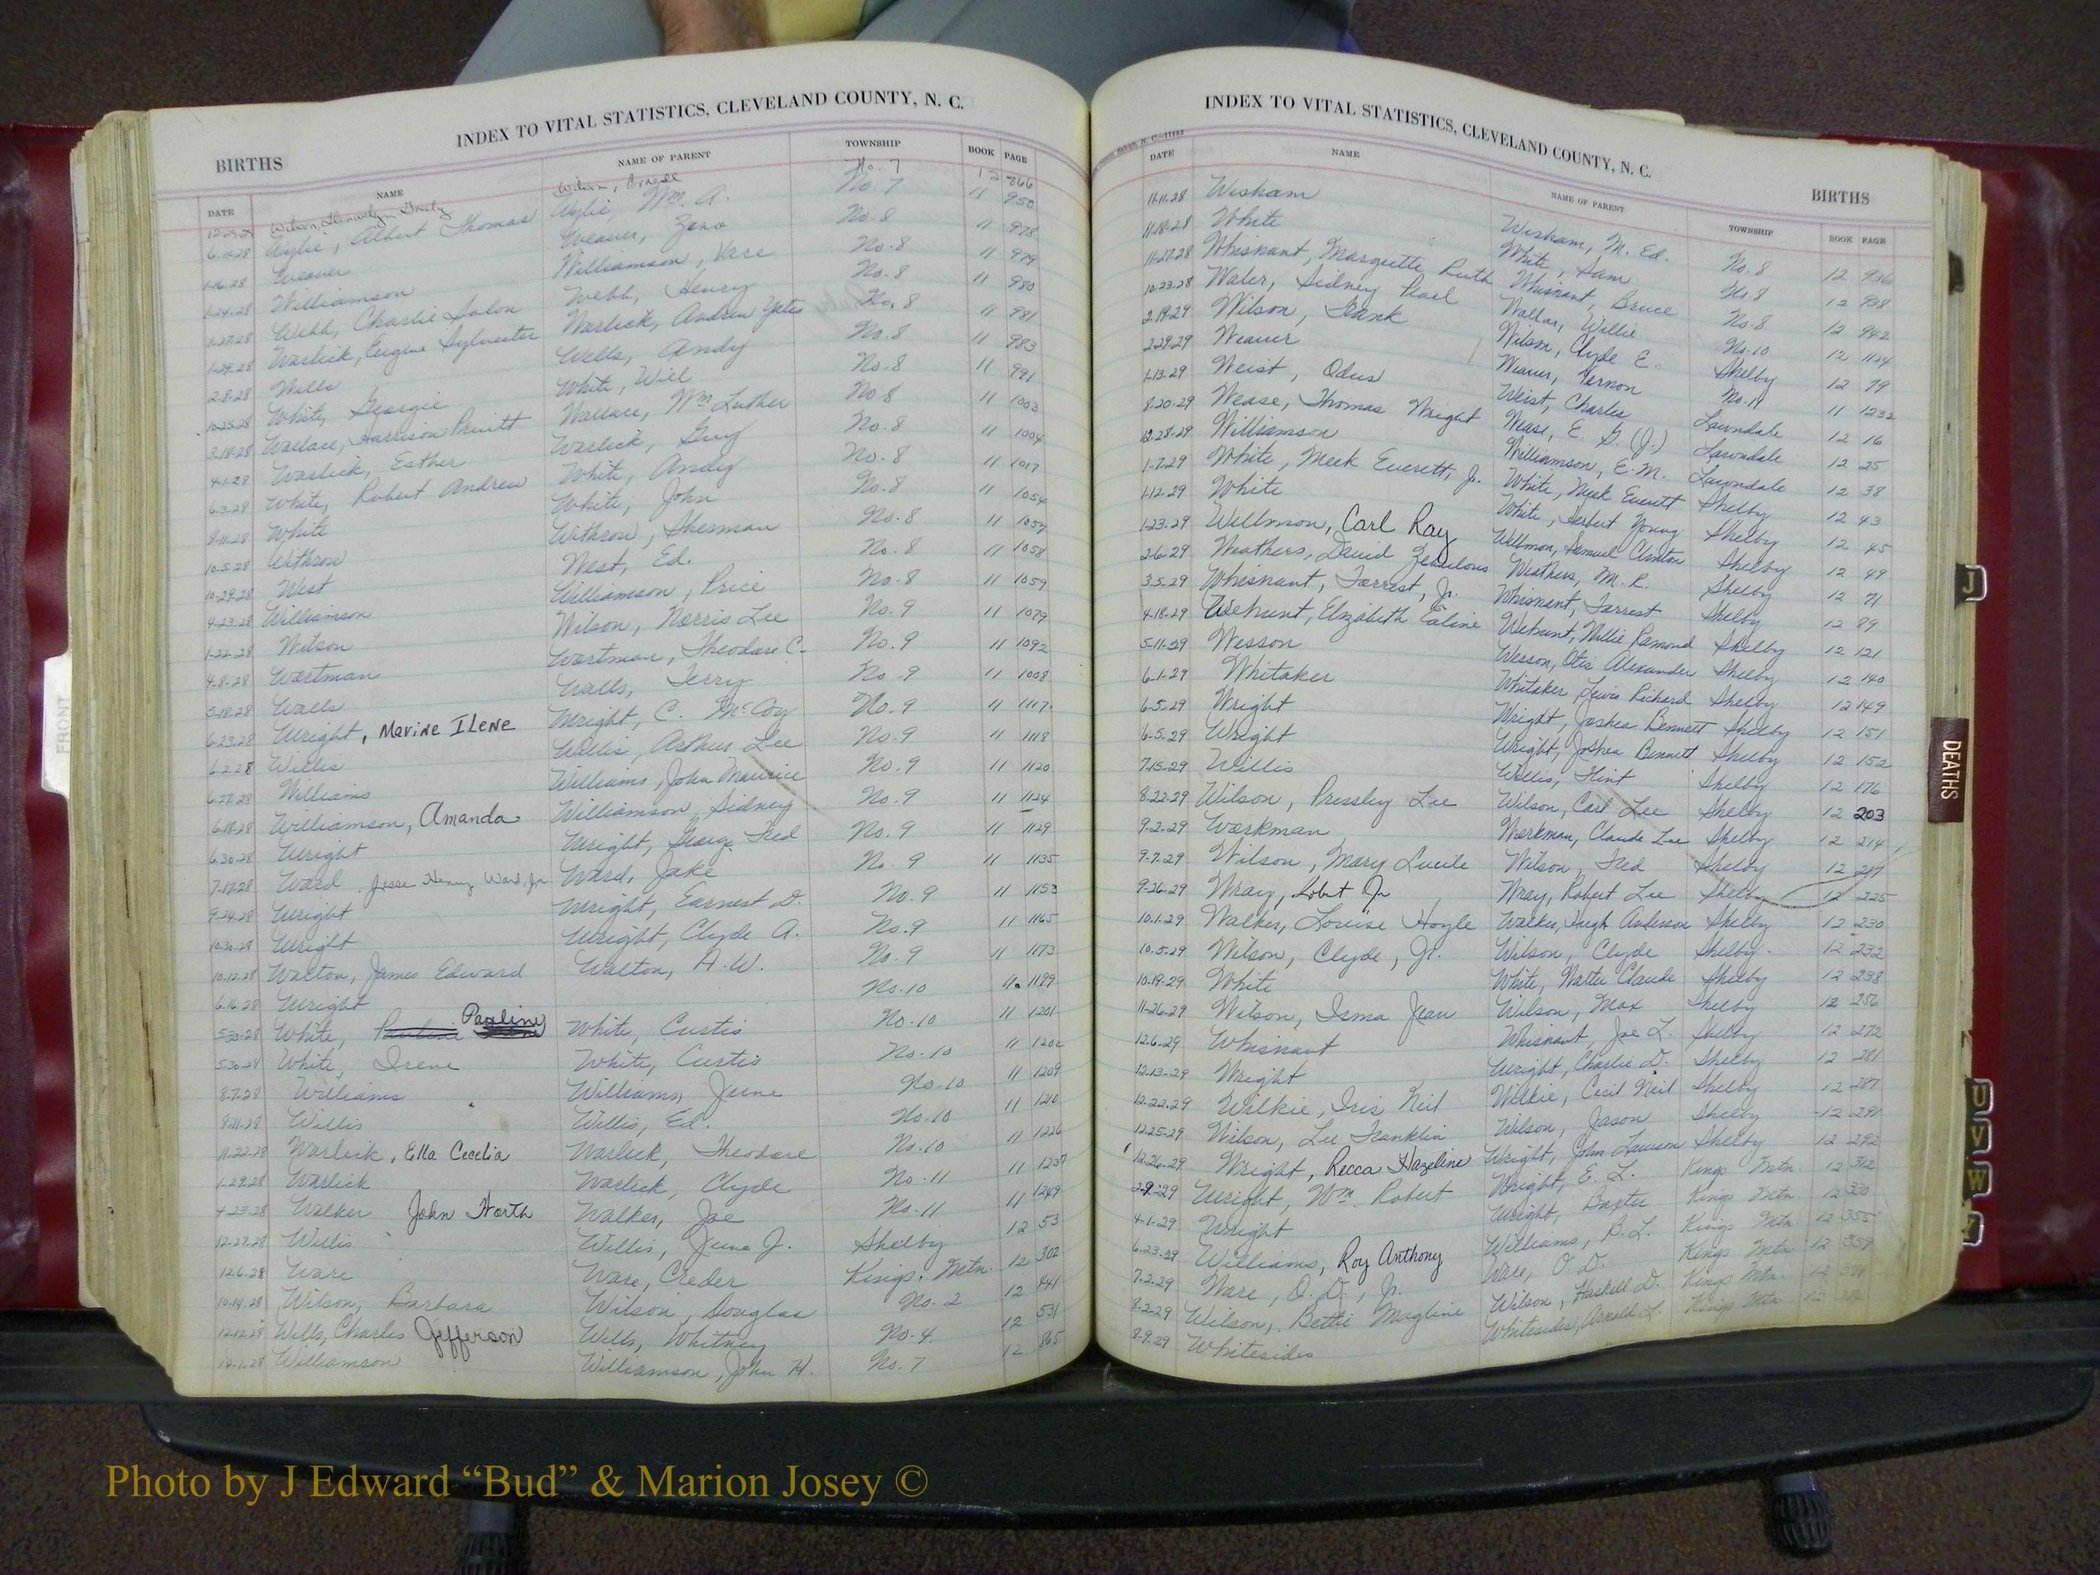 INDEX TO VITAL STATISTICS, CLEVELAND COUNTY, N. C.
BIRTHS
DATE NAME NAME OF PARENT TOWNSHIP BOOK PAGE
Wilson, No. 7 12 866
6-11-28 Wylie, Albert Thomas Wylie, Wm. A. No. 7 11 950
1-16-28 Weaver Weaver, Zeno No. 8 11 978
1-14-28 Williamson Williamson, Vare No. 8 11 979
1-27-28 Webb, Charlie Solon Webb, Henry No. 8 11 980
1-29-28 Warlick, Eugene Sylvester Warlick, Andrew Yates No. 8 11 981
2-8-28 Wells Wells, Andy No. 8 11 983
10-25-28 White, Georgie White, Will No. 8 11 991
3-18-28 Wallace, Harrison Pruitt Wallace, Wm Luther No 8 11 1003
4-1-28 Warlick, Esther Warlick, Guy No. 8 11 1004
6-3-28 White, Robert Andrew White, Andy No. 8 11 1017
8-11-28 White White, John No. 8 11 1054
10-5-28 Withrow Withrow, Sherman No. 8 11 1057
10-29-28 West West, Ed. No. 8 11 1058
4-23-28 Williamson Williamson, Price No. 8 11 1059
1-22-28 Wilson Wilson, Norris Lee No. 9 11 1079
4-8-28 Wortman Wortman, Theodore C. No. 9 11 1092
5-18-28 Walls Walls, Terry No. 9 11 1008
6-23-28 Wright, Mavine Ilene Wright, C. McCoy No. 9 11 1117
6-2-28 Willis Willis, Arthur Lee No. 9 11 1118
6-27-28 Williams Williams, John Maurice No. 9 11 1120
6-18-28 Williamson, Amanda Williamson, Sidney No. 9 11 1124
6-30-28 Wright Wright, George Fred No. 9 11 1129
7-17-28 Ward, Jesse Henry Ward, Jr. Ward, Jake No. 9 11 1135
9-24-28 Wright Wright, Earnest D. No. 9 11 1153
10-30-28 Wright Wright, Clyde A. No. 9 11 1165
10-12-28 Walton, James Edward Walton, A. W. No. 9 11 1173
6-16-28 Wright No. 10 11 1199
5-30-28 White, Pauline White, Curtis No. 10 11 1201
5-30-28 White, Irene White, Curtis No. 10 11 1202
8-7-28 Williams Williams, June No. 10 11 1209
8-11-28 Willis Willis, Ed. No. 10 11 1210
11-22-28 Warlick, Ella Cecelia Warlick, Theodore No. 10 11 1226
1-29-28 Warlick Warlick, Clyde No. 11 11 1237
4-23-28 Walker John North Walker, Joe No. 11 11 1249
12-27-28 Willis Willis, June J. Shelby 12 53
12-6-28 Ware Ware, Creder Kings. Mtn. 12 302
10-14-28 Wilson, Barbara Wilson, Douglas No. 2 12 441
12-12-28 Wells, Charles Jefferson Wells, Whitney No. 4 12 531
10-1-28 Williamson Williamson, John H. No. 7 12 865
INDEX TO VITAL STATISTICS, CLEVELAND COUNTY, N. C.
BIRTHS
DATE NAME NAME OF PARENT TOWNSHIP BOOK PAGE
11-11-28 Wesham Wesham, M. Ed. No. 8 12 936
11-18-28 White White, Sam No 8 12 938
11-27-28 Whisnant, Margrette Ruth Whisnant, Bruce No. 8 12 942
10-23-28 Waler, Sidney Pearl Wallar, Willie No. 10 12 1124
2-19-29 Wilson, Frank Wilson, Clyde E. Shelby 12 79
2-29-29 Weaver Weaver, Vernon No. 11 11 1232
1-13-29 Weist, Odus Weist, Charles Lawndale 12 16
8-20-29 Wease, Thomas Wright Wease, E. G. (J.) Lawndale 12 25
12-28-29 Williamson Williamson, E. M. Lawndale 12 38
1-7-29 White, Meek Everett, Jr. White, Meek Everett Shelby 12 43
1-12-29 White White, Herbert Young Shelby 12 45
1-23-29 Wellmon, Carl Ray Wellmon, Samuel Clinton Shelby 12 49
2-6-29 Weathers, David Zebulous Weathers, M. R. Shelby 12 71
3-5-29 Whisnant, Forrest, Jr. Whisnant, Forrest Shelby 12 89
4-18-29 Wehunt, Elizabeth Ealine Wehunt, Willie Ramond Shelby 12 121
5-11-29 Wesson Wesson, Otis Alexander Shelby 12 140
6-1-29 Whitaker Whitaker, Lewis Richard Shelby 12 149
6-5-29 Wright Wright, Joshea Bennett Shelby 12 151
6-5-29 Wright Wright, Joshea Bennett Shelby 12 152
7-15-29 Willis Willis, Flint Shelby 12 176
8-22-29 Wilson, Pressley Lee Wilson, Carl Lee Shelby 12 203
9-2-29 Workman Workman, Claude Lee Shelby 12 214
9-7-29 Wilson, Mary Lucile Wilson, Fred Shelby 12 217
9-26-29 Wray, Robert Jr Wray, Robert Lee Shelby 12 225
10-1-29 Walker, Louise Hoyle Walker, Hugh Anderson Shelby 12 230
10-5-29 Wilson, Clyde, Jr. Wilson, Clyde Shelby 12 232
10-19-29 White White, Wattie Claude Shelby 12 238
11-26-29 Wilson, Irma Jean Wilson, Max Shelby 12 256
12-6-29 Whisnant Whisnant, Joe L. Shelby 12 272
12-13-29 Wright Wright, Charlie D. Shelby 12 281
12-22-29 Wilkie, Iris Neil Wilkie, Cecil Neil Shelby 12 287
12-25-29 Wilson, Lee Franklin Wilson, Jason Shelby 12 291
12-26-29 Wright, Recca Hazeline Wright, John Lawson Shelby 12 292
2-9-29 Wright, Wm. Robert Wright, E. L. Kings Mtn. 12 312
4-1-29 Wright Wright, Baxter Kings Mtn 12 330
6-23-29 Williams, Roy Anthony Williams, B. L. Kings Mtn. 12 355
7-2-29 Ware, O. D., Jr. Ware, O D. Kings Mtn. 12 359
8-2-29 Wilson, Bettie Magline Wilson, Haskell D. Kings Mtn. 12
8-9-29 Whitesides Whitesides, Arnold Kings Mtn 12
FRONT
J
DEATHS
U
V
W
Photo by J Edward “Bud” & Marion Josey ©